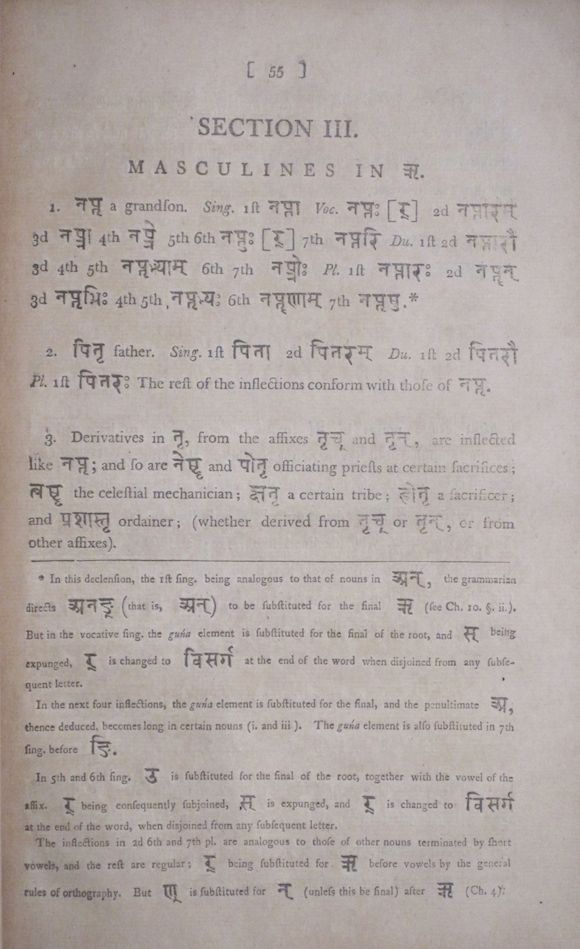 [ 55 ]
SECTION III.
MASCULINES IN ऋ.
1. नप्तृ a grandſon. Sing. 1ſt नप्ता Voc. नप्तः [र्] 2d नप्तारम्
3d नप्त्रा 4th नप्त्रे 5th 6th नप्तुः [र्] 7th नप्तरि Du. 1ſt 2d नप्तारौ
3d 4th 5th नप्तृभ्याम् 6th 7th नप्त्रोः Pl. 1ſt नप्तारः 2d नप्तॄन्
3d नप्तृभिः 4th 5th नप्तृभ्यः 6th नप्तॄणाम् 7th नप्तृषु.*
2. पितृ father. Sing. 1ſt पिता 2d पितरम् Du. 1ſt 2d पितरौ
Pl. 1ſt पितरः The reſt of the inflections conform with thoſe of नप्तृ.
3. Derivatives in तृ, from the affixes तृच् and तृन्, are inflected
like नप्तृ; and ſo are नेष्टृ and पोतृ officiating prieſts at certain ſacrifices;
त्वष्टृ the celeſtial mechanician; क्षतृ a certain tribe; होतृ a ſacrificer;
and प्रशास्तृ ordainer; (whether derived from तृच् or तृन्, or from
other affixes).
* In this declenſion, the 1ſt ſing. being analogous to that of nouns in अन्, the grammarian
directs अनङ् (that is, अन्) to be ſubſtituted for the final ऋ (ſee Ch. 10. §. ii.).
But in the vocative ſing. the guńa element is ſubſtituted for the final of the root, and स् being
expunged, र् is changed to विसर्ग at the end of the word when disjoined from any ſubſe-
quent letter.
In the next four inflections, the guńa element is ſubſtituted for the final, and the penultimate अ,
thence deduced, becomes long in certain nouns (i. and iii.). The guńa element is alſo ſubſtituted in 7th
ſing. before ङि.
In 5th and 6th ſing. उ is ſubſtituted for the final of the root, together with the vowel of the
affix. र् being conſequently ſubjoined, स् is expunged, and र् is changed to विसर्ग
at the end of the word, when disjoined from any ſubſequent letter.
The inflections in 2d 6th and 7th pl. are analogous to thoſe of other nouns terminated by ſhort
vowels, and the reſt are regular; र् being ſubſtituted for ऋ before vowels by the general
rules of orthography. But ण् is ſubſtituted for न् (unleſs this be final) after ऋ (Ch. 4).